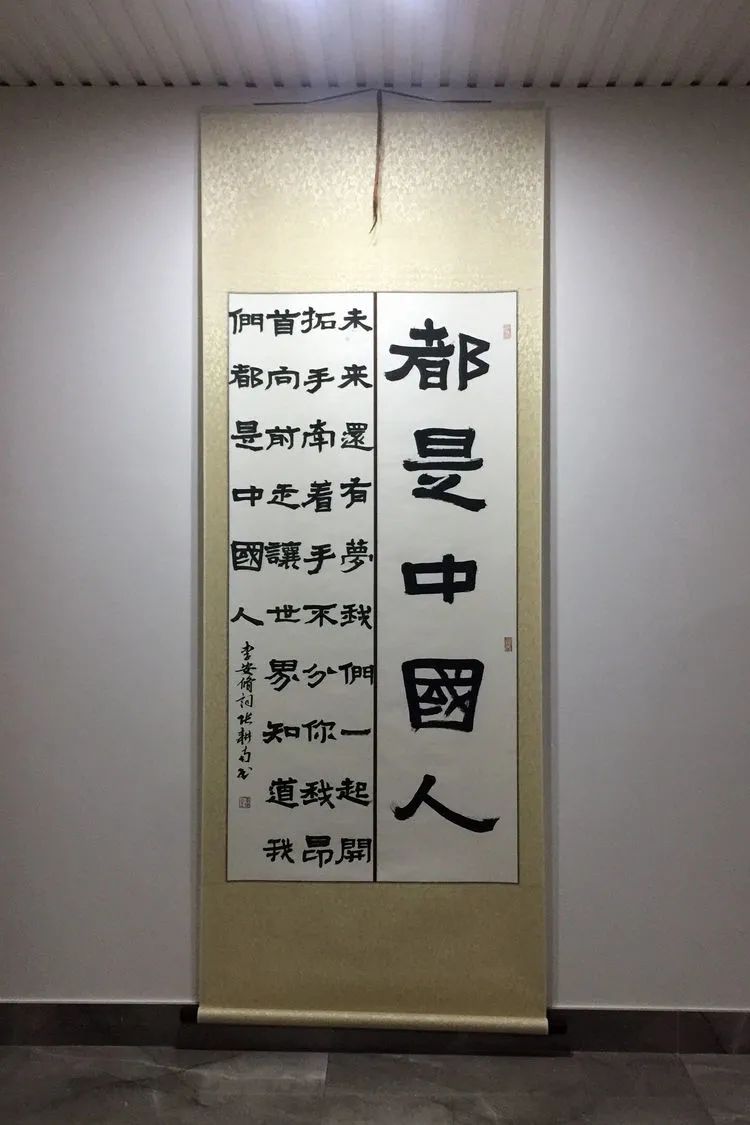 都是中國人
未来還有夢我們一起開
拓手牵着手不分你我昂
首向前走讓世界知道我
們都是中國人
李安脩詞张耕南书